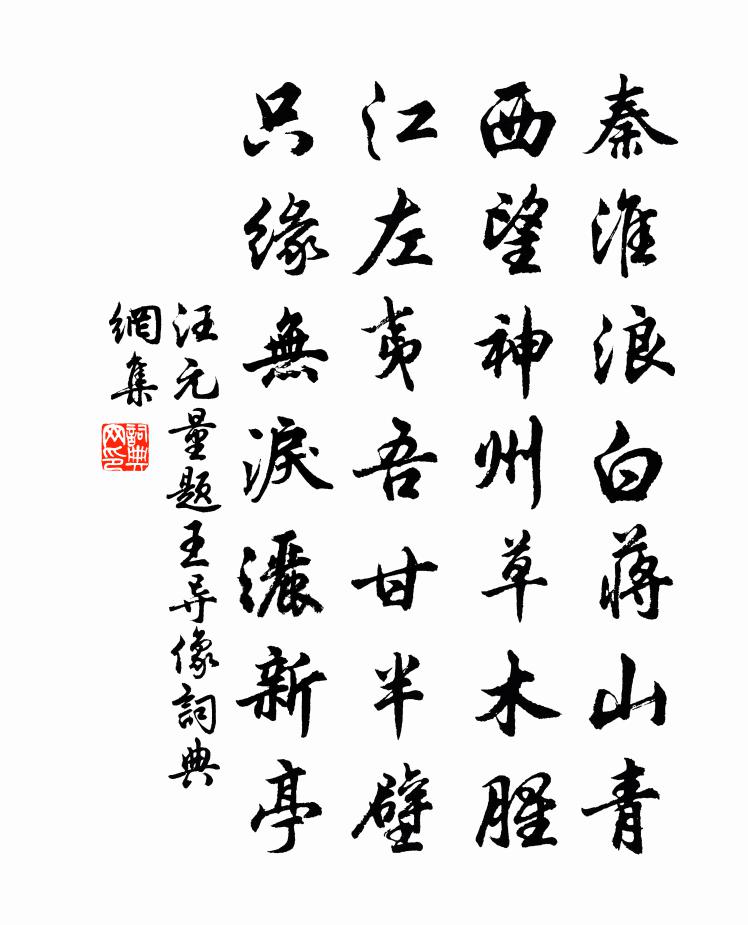 秦淮浪白蔣山青
西望神州草木腥
江左夷吾甘半壁
只緣無淚灑新亭
汪元量题王导像詞典
網集
詞典
网印